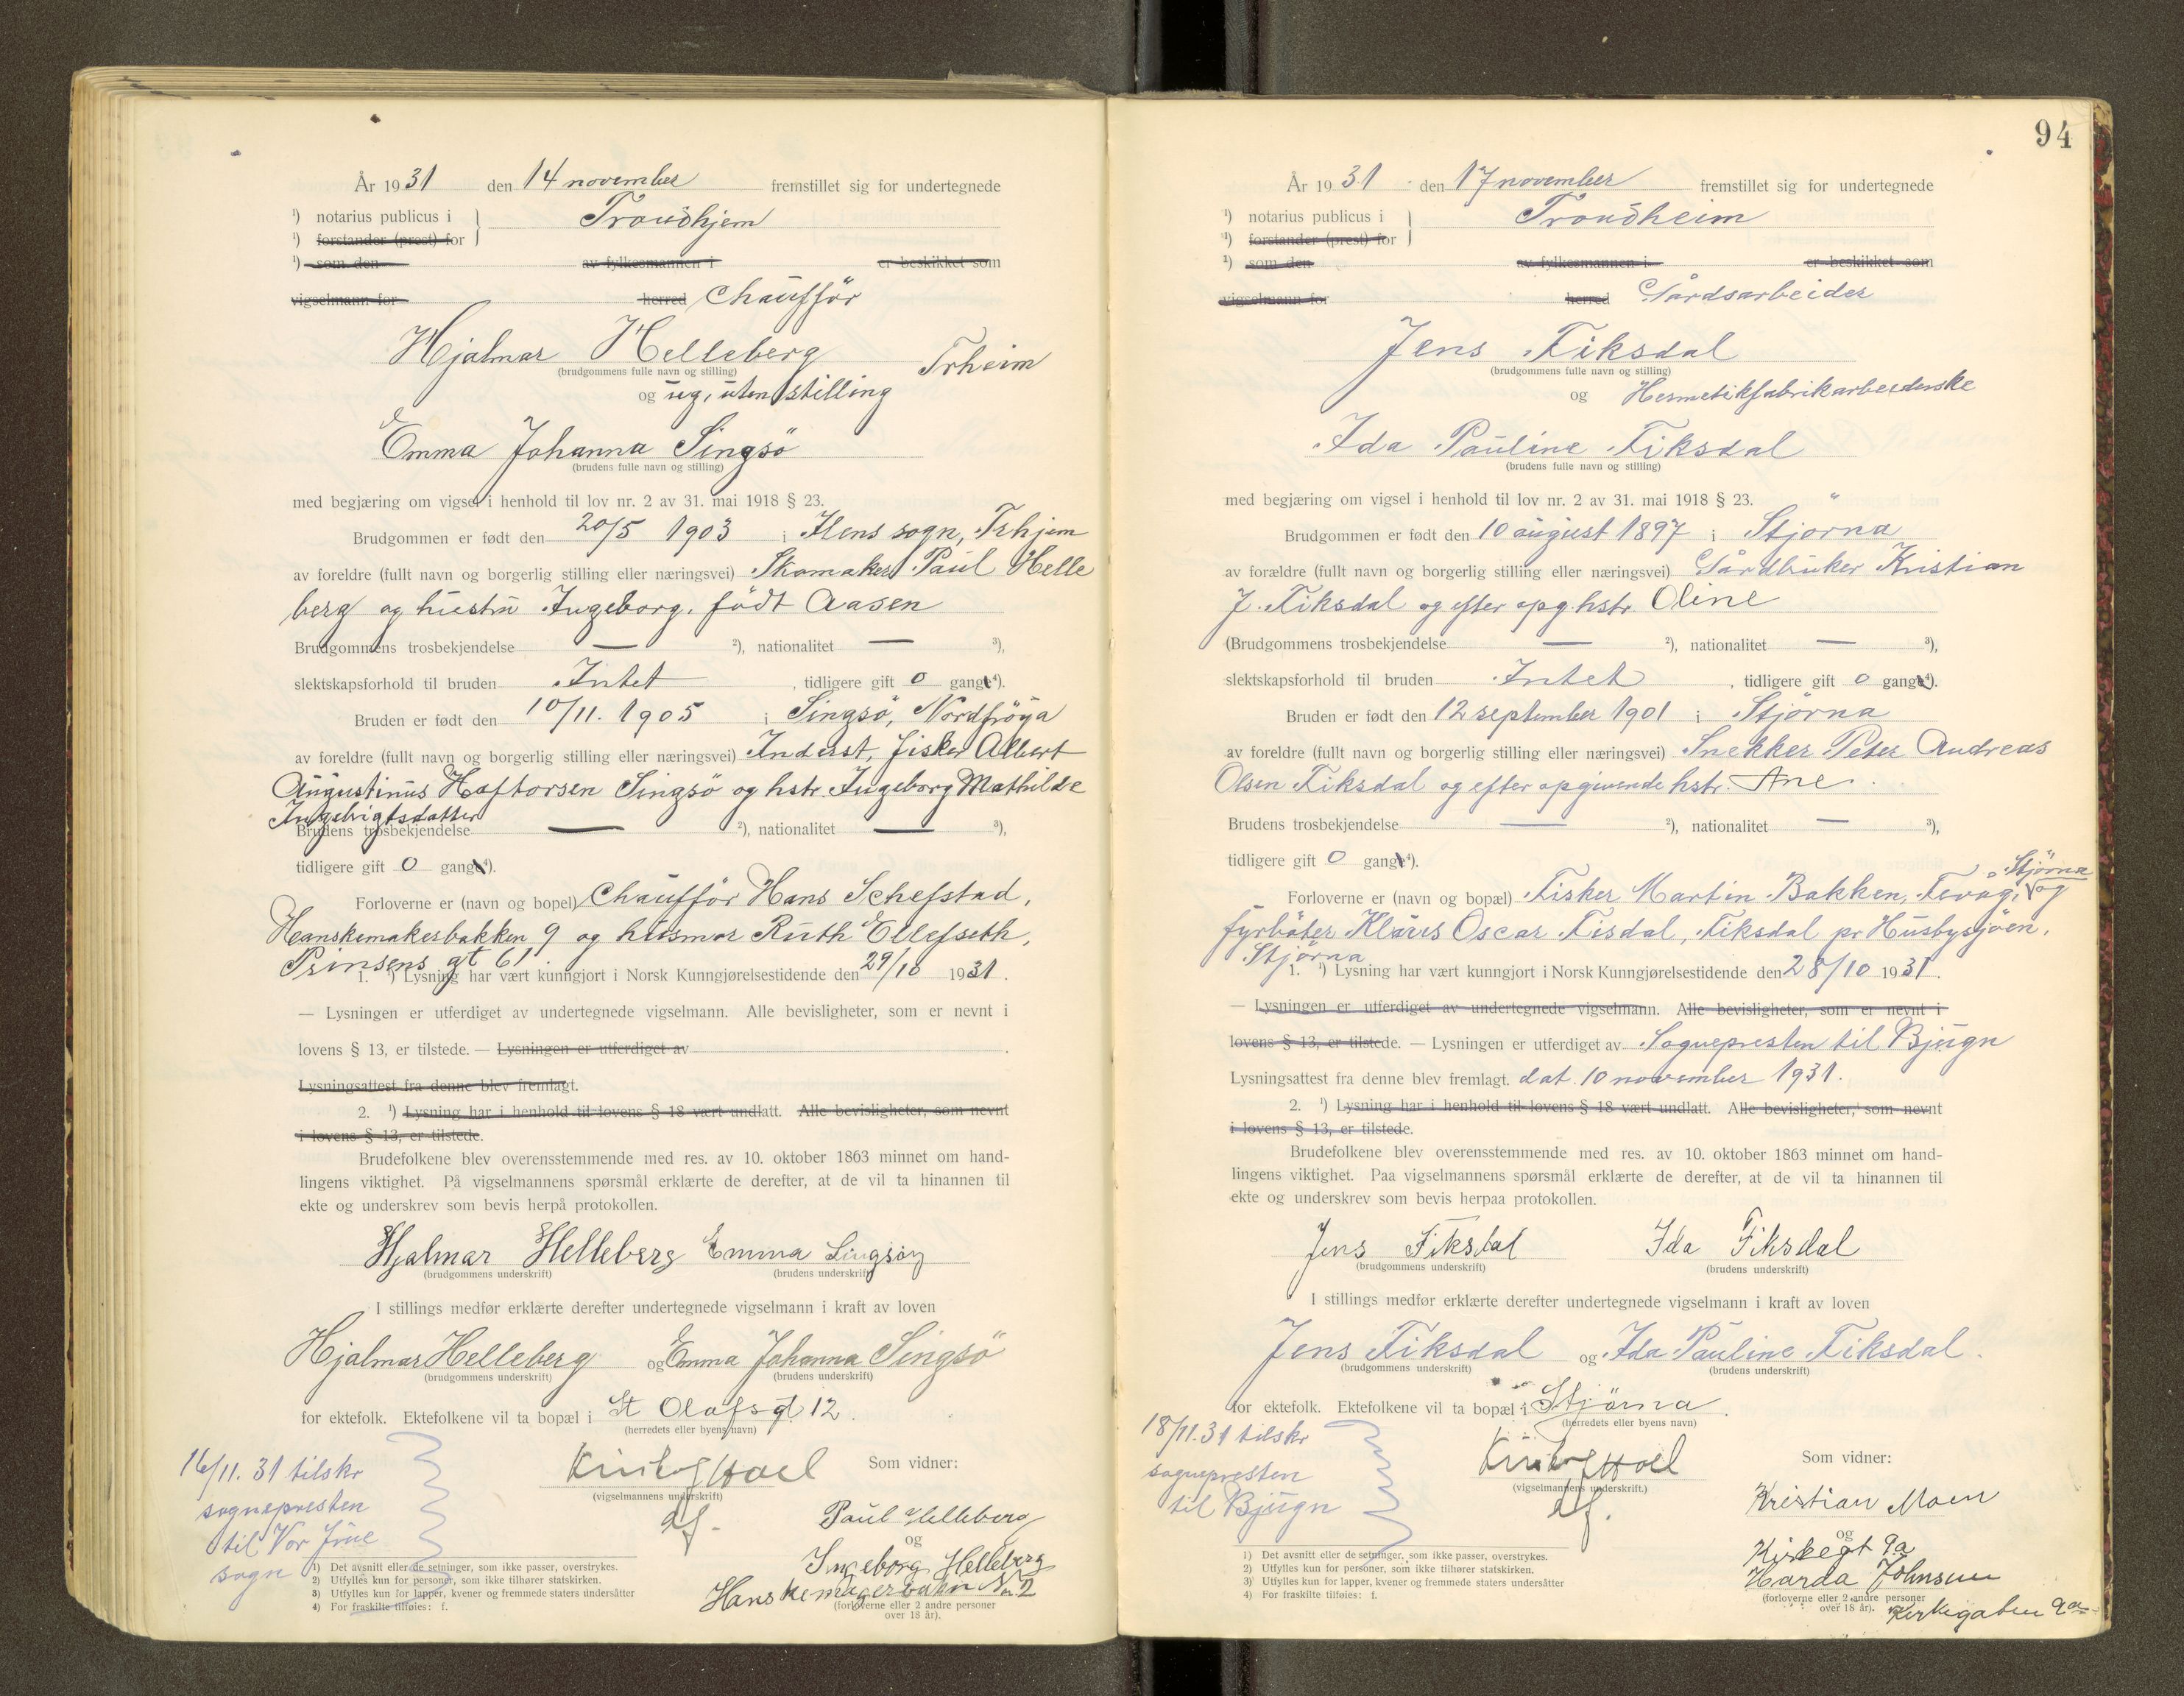 År 1931 den 14 november fremstillet sig for undertegnede
¹) notarius publicus i } Trondhjem
¹) forstander (prest) for
¹) som den av fylkesmannen i er beskikket som
vigselmann for herred Chaufför
Hjalmar Helleberg Trheim
(brudgommens fulle navn og stilling)
og ug. uten stilling
Emma Johanna Singsö
(brudens fulle navn og stilling)
med begjæring om vigsel i henhold til lov nr. 2 av 31. mai 1918 § 23.
Brudgommen er født den 20/5 1903 i Ilens sogn, Trhjem
av foreldre (fullt navn og borgerlig stilling eller næringsvei) Skomaker Paul Helle
berg og hustru Ingeborg, födt Aasen
Brudgommens trosbekjendelse — ²), nationalitet — ³),
slektskapsforhold til bruden Intet, tidligere gift 0 gang⁴).
Bruden er født den 10/11. 1905 i Singsö, Nordfröya
av foreldre (fullt navn og borgerlig stilling eller næringsvei) Inderst, fisker Albert
Augustinus Haftorsen Singsö og hstr. Ingeborg Mathilde
Ingebrigtsdatter
Brudens trosbekjendelse — ²), nationalitet — ³),
tidligere gift 0 gang⁴).
Forloverne er (navn og bopel) Chaufför Hans Schefstad,
Hanskemakerbakken 9 og husmor Ruth Ellefseth,
Prinsens gt 61.
1. ¹) Lysning har vært kunngjort i Norsk Kunngjørelsestidende den 29/10 1931.
— Lysningen er utferdiget av undertegnede vigselmann. Alle bevisligheter, som er nevnt i
lovens § 13, er tilstede. — Lysningen er utferdiget av
Lysningsattest fra denne blev fremlagt.
2. ¹) Lysning har i henhold til lovens § 18 vært undlatt. Alle bevisligheter, som nevnt
i lovens § 13, er tilstede.
Brudefolkene blev overensstemmende med res. av 10. oktober 1863 minnet om hand-
lingens viktighet. På vigselmannens spørsmål erklærte de derefter, at de vil ta hinannen til
ekte og underskrev som bevis herpå protokollen.
Hjalmar Helleberg Emma Singsöy
(brudgommens underskrift) (brudens underskrift)
I stillings medfør erklærte derefter undertegnede vigselmann i kraft av loven
Hjalmar Helleberg og Emma Johanna Singsö
(brudgommens underskrift) (brudens underskrift)
for ektefolk. Ektefolkene vil ta bopæl i St Olafsgt. 12.
(herredets eller byens navn)
16/11. 31 tilskr
sognepresten
til Vor Frue
sogn
Hoel Som vidner:
(vigselmannens underskrift)
Paul Helleberg
og
Ingeborg Helleberg
(forloverne eller 2 andre personer
over 18 år).
1) Det avsnitt eller de setninger, som ikke passer, overstrykes.
2) Utfylles kun for personer, som ikke tilhører statskirken.
3) Utfylles kun for lapper, kvener og fremmede staters undersåtter
4) For fraskilte tilføies: f.
94
År 1931 den 17 november fremstillet sig for undertegnede
¹) notarius publicus i } Trondheim
¹) forstander (prest) for
¹) som den av fylkesmannen i er beskikket som
vigselmann for herred Gårdsarbeider
Jens Fiksdal
(brudgommens fulle navn og stilling)
og Hermetikfabrikarbeiderske
Ida Pauline Fiksdal
(brudens fulle navn og stilling)
med begjæring om vigsel i henhold til lov nr. 2 av 31. mai 1918 § 23.
Brudgommen er født den 10 august 1897 i Stjørna
av forældre (fullt navn og borgerlig stilling eller næringsvei) Gårdbruker Kristian
J. Fiksdal og efter opg. hstr. Oline
(Brudgommens trosbekjendelse — ²), nationalitet — ³),
slektskapsforhold til bruden Intet, tidligere gift 0 gang⁴).
Bruden er født den 12 september 1901 i Stjørna
av foreldre (fullt navn og borgerlig stilling eller næringsvei) Snekker Peter Andreas
Olsen Fiksdal og efter opgivende hstr. Ane.
Brudens trosbekjendelse — ²), nationalitet — ³),
tidligere gift 0 gang⁴).
Forloverne er (navn og bopæl) Fisker Martin Bakken, Fevåg, Stjörna og
fyrböter Klaus Oscar Fisdal, Fiksdal pr Husbysjöen,
Stjörna
1. ¹) Lysning har vært kunngjort i Norsk Kunngjørelsestidende den 28/10 1931.
— Lysningen er utferdiget av undertegnede vigselmann. Alle bevisligheter, som er nevnt i
lovens § 13, er tilstede. — Lysningen er utferdiget av Sognepresten til Bjugn
Lysningsattest fra denne blev fremlagt. dat. 10 november 1931.
2. ¹) Lysning har i henhold til lovens § 18 vært undlatt. Alle bevisligheter, som nevnt
i lovens § 13, er tilstede.
Brudefolkene blev overensstemmende med res. av 10. oktober 1863 minnet om hand-
lingens viktighet. Paa vigselmannens spørsmål erklærte de derefter, at de vil ta hinannen til
ekte og underskrev som bevis herpaa protokollen.
Jens Fiksdal Ida Fiksdal
(brudgommens underskrift) (brudens underskrift)
I stillings medfør erklærte derefter undertegnede vigselmann i kraft av loven
Jens Fiksdal og Ida Pauline Fiksdal.
(brudgommens underskrift) (brudens underskrift)
for ektefolk. Ektefolkene vil ta bopæl i Stjörna.
(herredets eller byens navn)
18/11. 31 tilskr
sognepresten
til Bjugn
Hoel Som vidner:
(vigselmannens underskrift.)
Kristian Moen
og
Kirkegt 9a
Harda Johnsen
(forloverne eller 2 andre personer
over 18 år). Kirkegaten 9a
1) Det avsnitt eller de setninger, som ikke passer, overstrykes.
2) Utfylles kun for personer, som ikke tilhører statskirken.
3) Utfylles kun for lapper, kvener og fremmede staters undersåtter
4) For fraskilte tilføies: f.